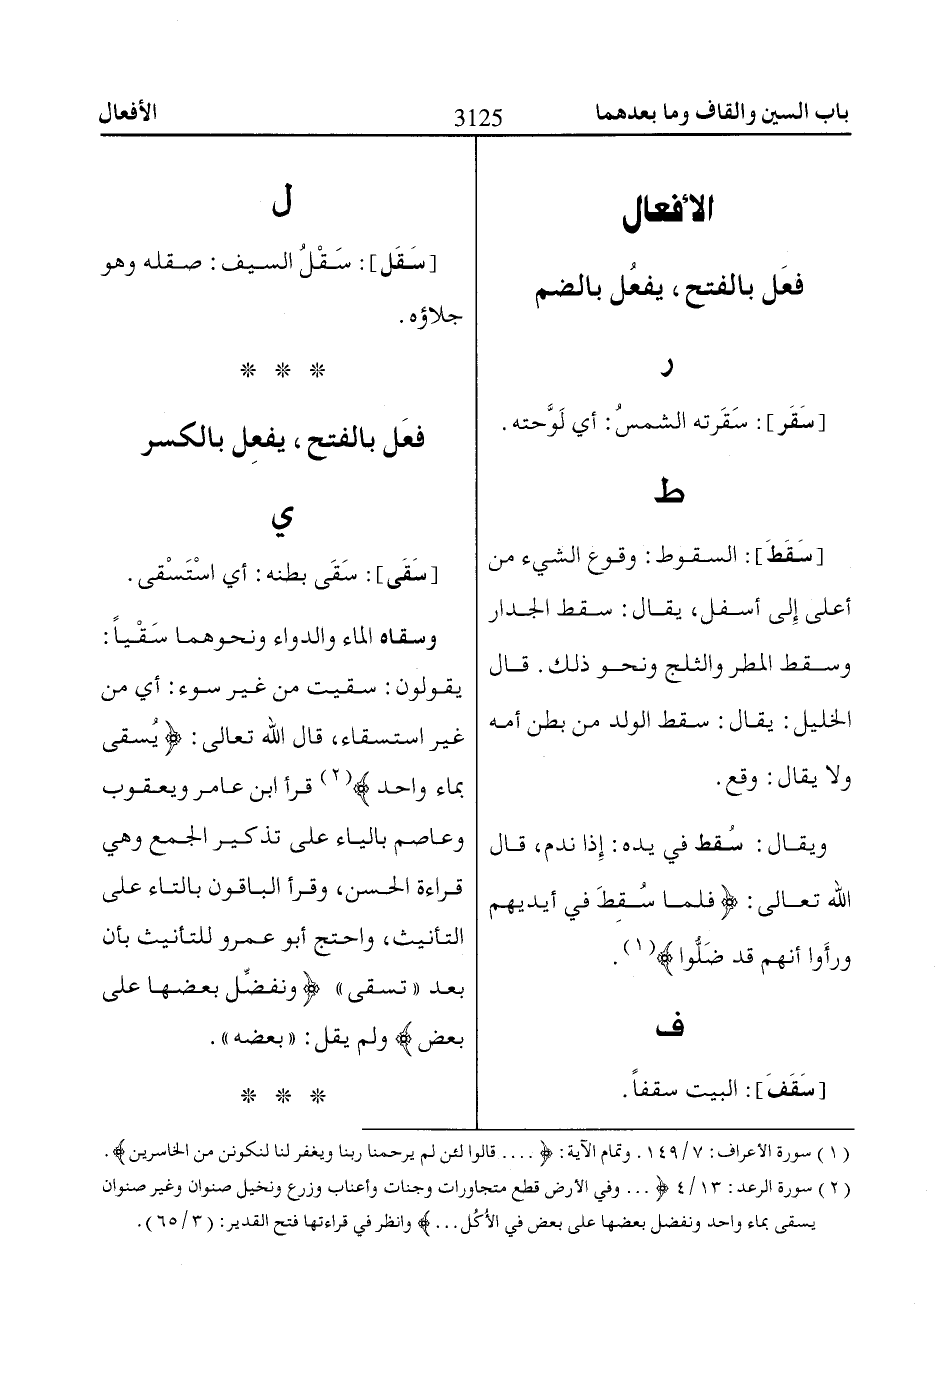 باب السين والقاف وما بعدهما
3125
الأفعال
الأفعال
فعَل بالفتح، يفعُل بالضم
ر
[سَقَر]: سَقَرته الشمسُ: أي لَوَّحته.
ط
[سَقَطَ]: السقوط: وقوع الشيء من
أعلى إلى أسفل، يقال: سقط الجدار
وسقط المطر والثلج ونحو ذلك. قال
الخليل: يقال: سقط الولد من بطن أمه
ولا يقال: وقع.
ويقال: سُقط في يده: إذا ندم، قال
الله تعالى: ﴿ فلما سُقِطَ في أيديهم
ورأوا أنهم قد ضَلُّوا ﴾(١).
ف
[سَقَفَ]: البيت سقفاً.
ل
[سَقَل]: سَقْلُ السيف: صقله وهو
جلاؤه.
* * *
فعَل بالفتح، يفعِل بالكسر
ي
[سَقَى]: سَقَى بطنه: أي اسْتَسْقى.
وسقاه الماء والدواء ونحوهما سَقْياً:
يقولون: سقيت من غير سوء: أي من
غير استسقاء، قال الله تعالى: ﴿ يُسقى
بماء واحد ﴾(٢) قرأ ابن عامر ويعقوب
وعاصم بالياء على تذكير الجمع وهي
قراءة الحسن، وقرأ الباقون بالتاء على
التأنيث، واحتج أبو عمرو للتأنيث بأن
بعد «تسقى» ﴿ ونفضِّل بعضها على
بعض ﴾ ولم يقل: «بعضه».
* * *
(١) سورة الأعراف: ٧/ ١٤٩. وتمام الآية: ﴿ .... قالوا لئن لم يرحمنا ربنا ويغفر لنا لنكونن من الخاسرين ﴾.
(٢) سورة الرعد: ١٣/ ٤ ﴿ ... وفي الأرض قطع متجاورات وجنات وأعناب وزرع ونخيل صنوان وغير صنوان
يسقى بماء واحد ونفضل بعضها على بعض في الأُكُل... ﴾ وانظر في قراءتها فتح القدير: (٣/ ٦٥).